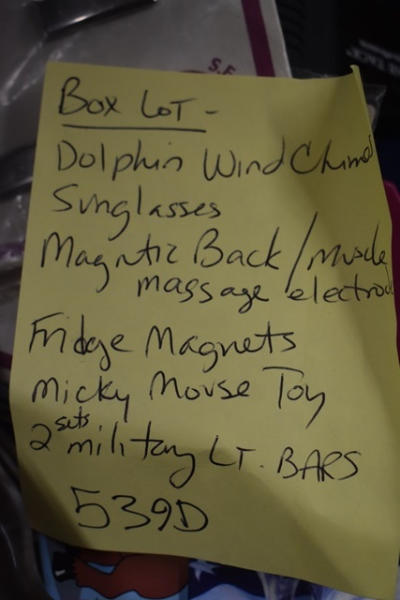 S.F
Box LoT -
Dolphin Wind Chimes
Sunglasses
Magntic Back / muscle
massage electrod
Fridge Magnets
Micky Mouse Toy
2 sets military LT. BARS
539D